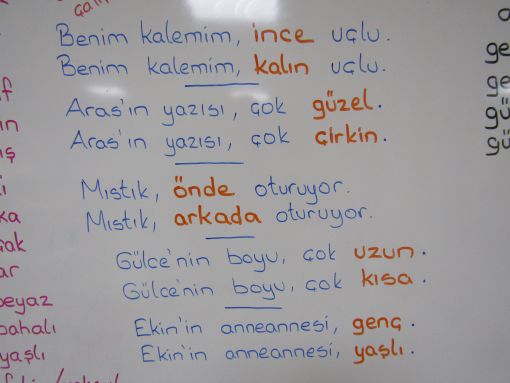 Benim kalemim, ince uçlu.
Benim kalemim, kalın uçlu.
Aras'ın yazısı, çok güzel.
Aras'ın yazısı, çok çirkin.
Mıstık, önde oturuyor.
Mıstık, arkada oturuyor.
Gülce'nin boyu, çok uzun.
Gülce'nin boyu, çok kısa.
Ekin'in anneannesi, genç.
Ekin'in anneannesi, yaşlı.
beyaz
pahalı
yaşlı